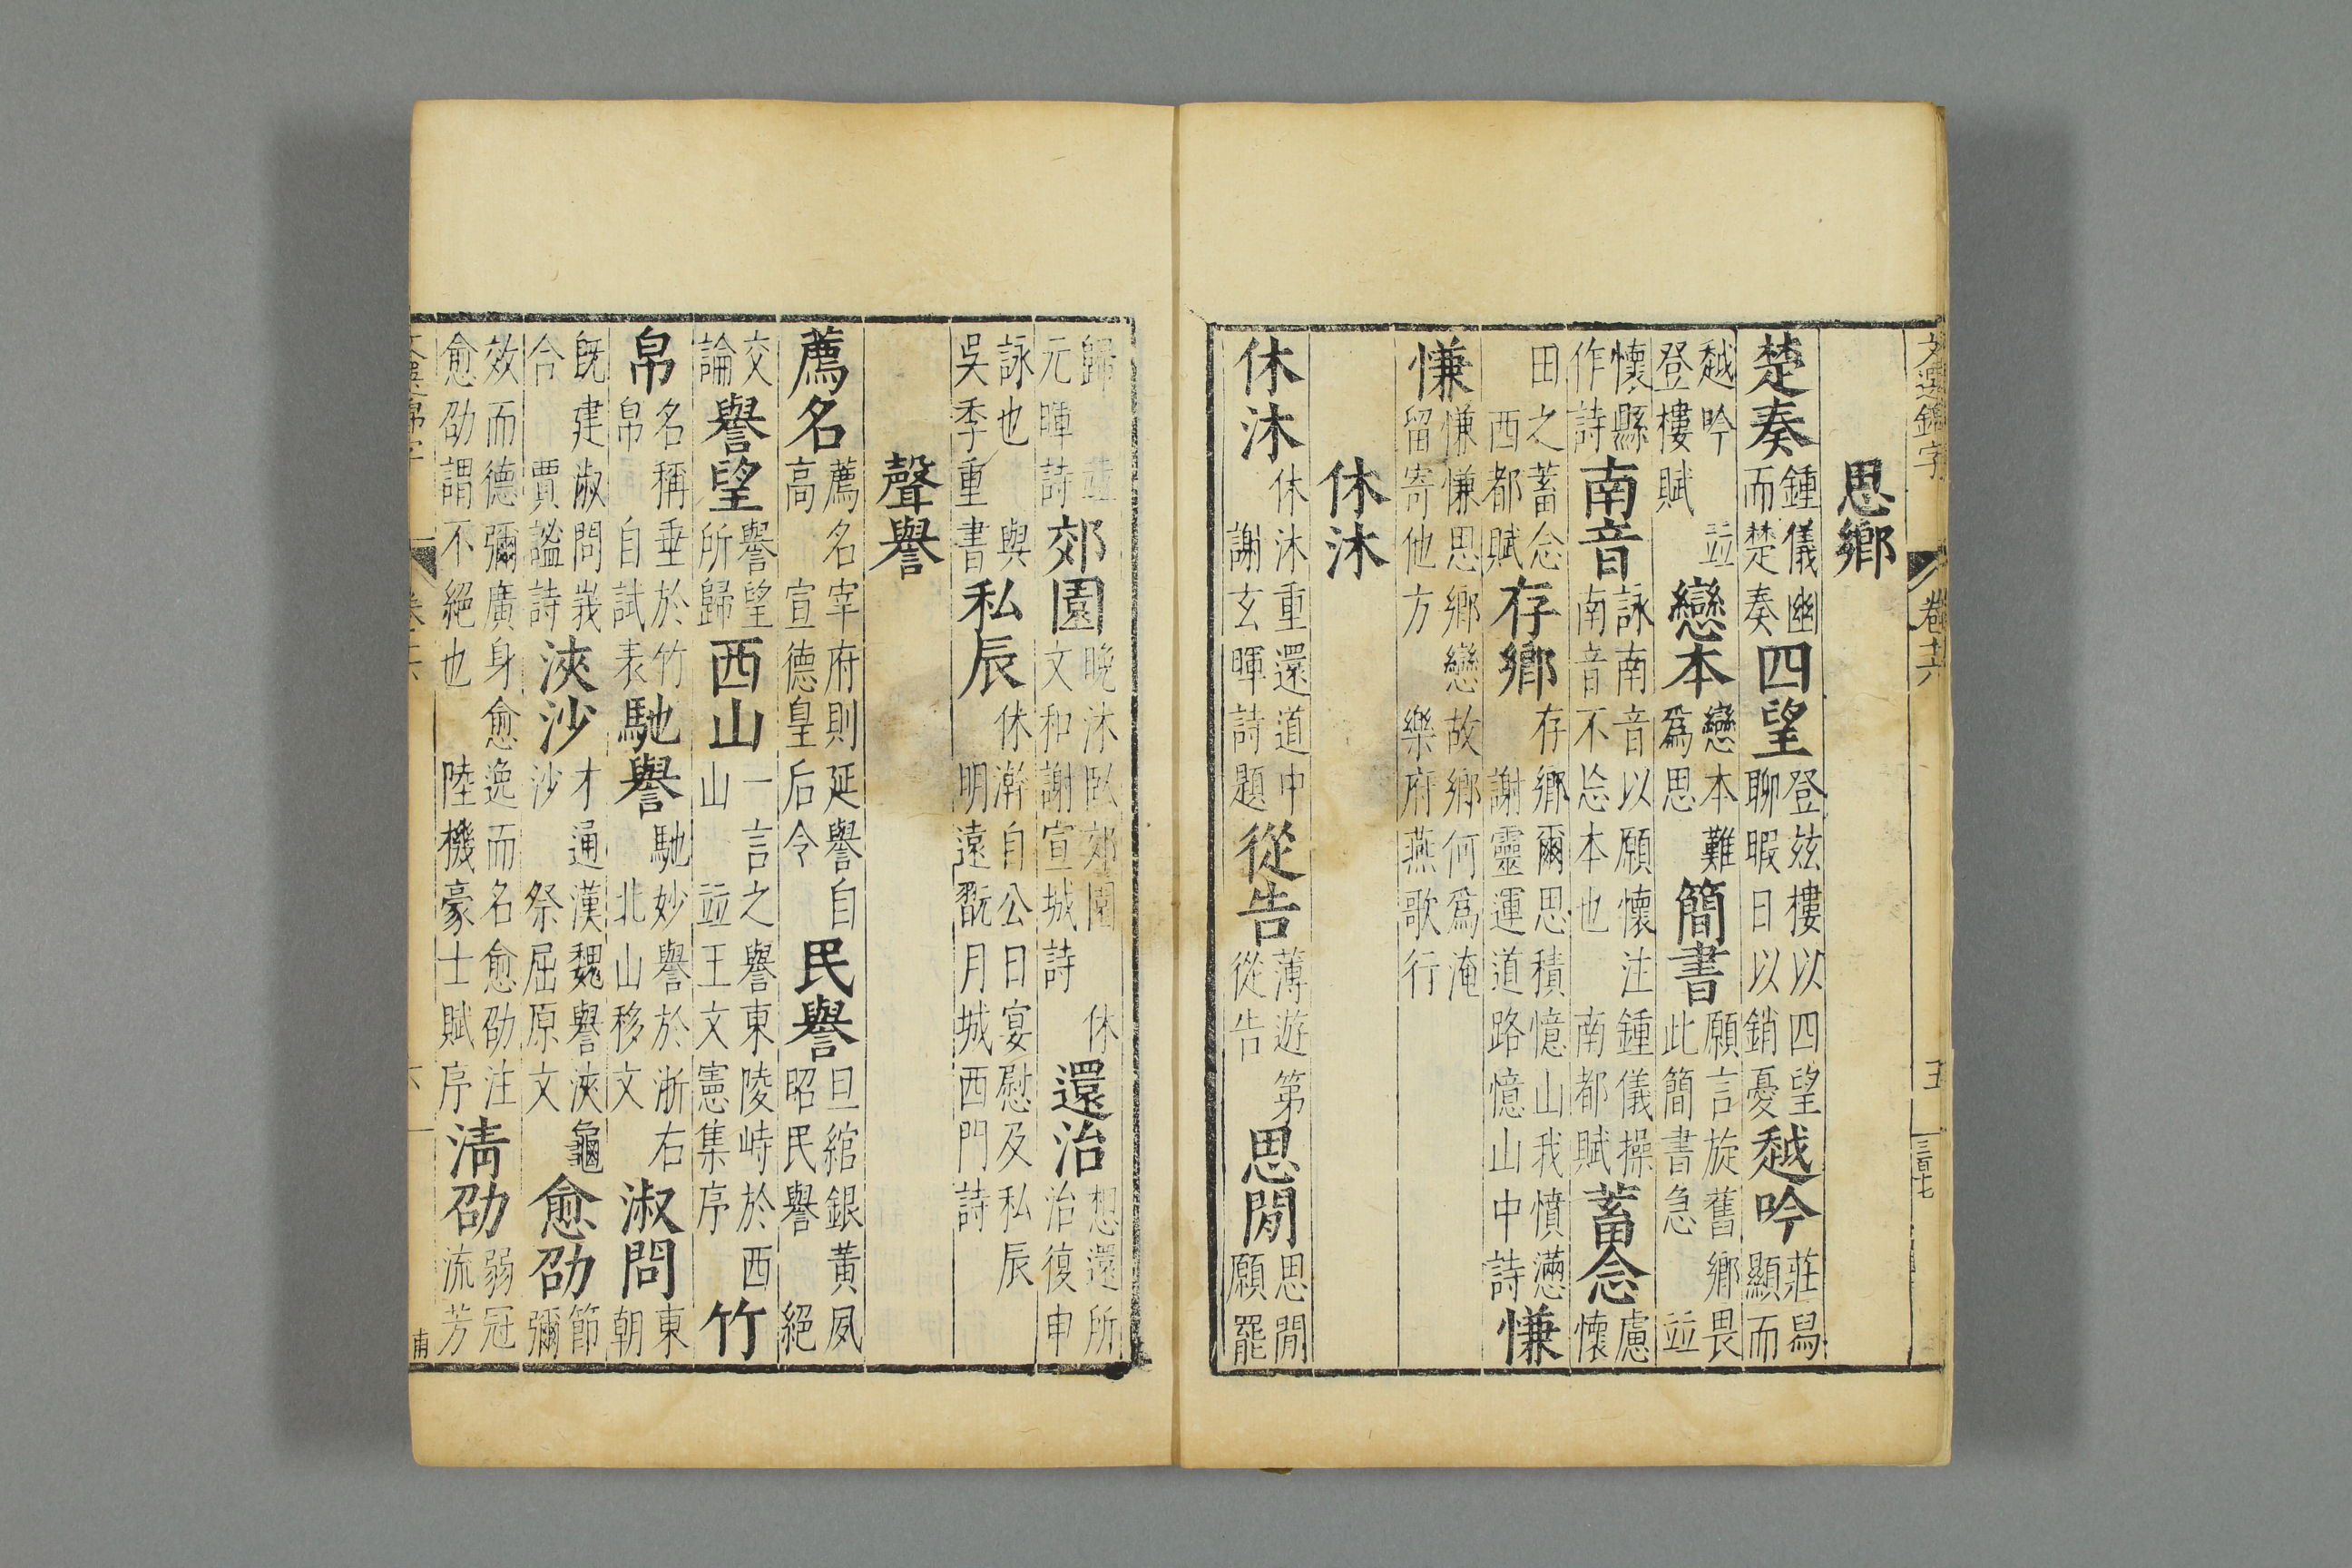 文選錦字 卷十六 五 三百七
思鄉
楚奏鍾儀幽而楚奏四望登玆樓以四望聊暇日以銷憂越吟莊舄顯而
越吟並登樓賦戀本戀本難爲思簡書願言旋舊鄉畏此簡書急並
懷縣作詩南音詠南音以願懷注鍾儀操南音不忘本也南都賦蓄念慮懷
田之蓄念西都賦存鄉存鄉爾思積憶山我憤懣謝靈運道路憶山中詩慊
慊慊慊思鄉戀故鄉何爲淹留寄他方樂府燕歌行
休沐
休沐休沐重還道中謝玄暉詩題從告薄遊第從告思閒思閒願罷
歸並元暉詩郊園晚沐臥郊園休文和謝宣城詩還治想還所治復申
詠也與吳季重書私辰休澣自公日宴慰及私辰明遠翫月城西門詩
聲譽
薦名薦名宰府則延譽自高宣德皇后令民譽旦綰銀黃夙昭民譽絕
交論譽望譽望所歸西山一言之譽東陵峙於西山並王文憲集序竹
帛名稱垂於竹帛自試表馳譽馳妙譽於浙右北山移文淑問東朝
旣建淑問峩合賈謐詩浹沙才通漢魏譽浹龜沙祭屈原文愈劭節彌
效而德彌廣身愈逸而名愈劭注愈劭謂不絕也陸機豪士賦序清劭弱冠流芳
南